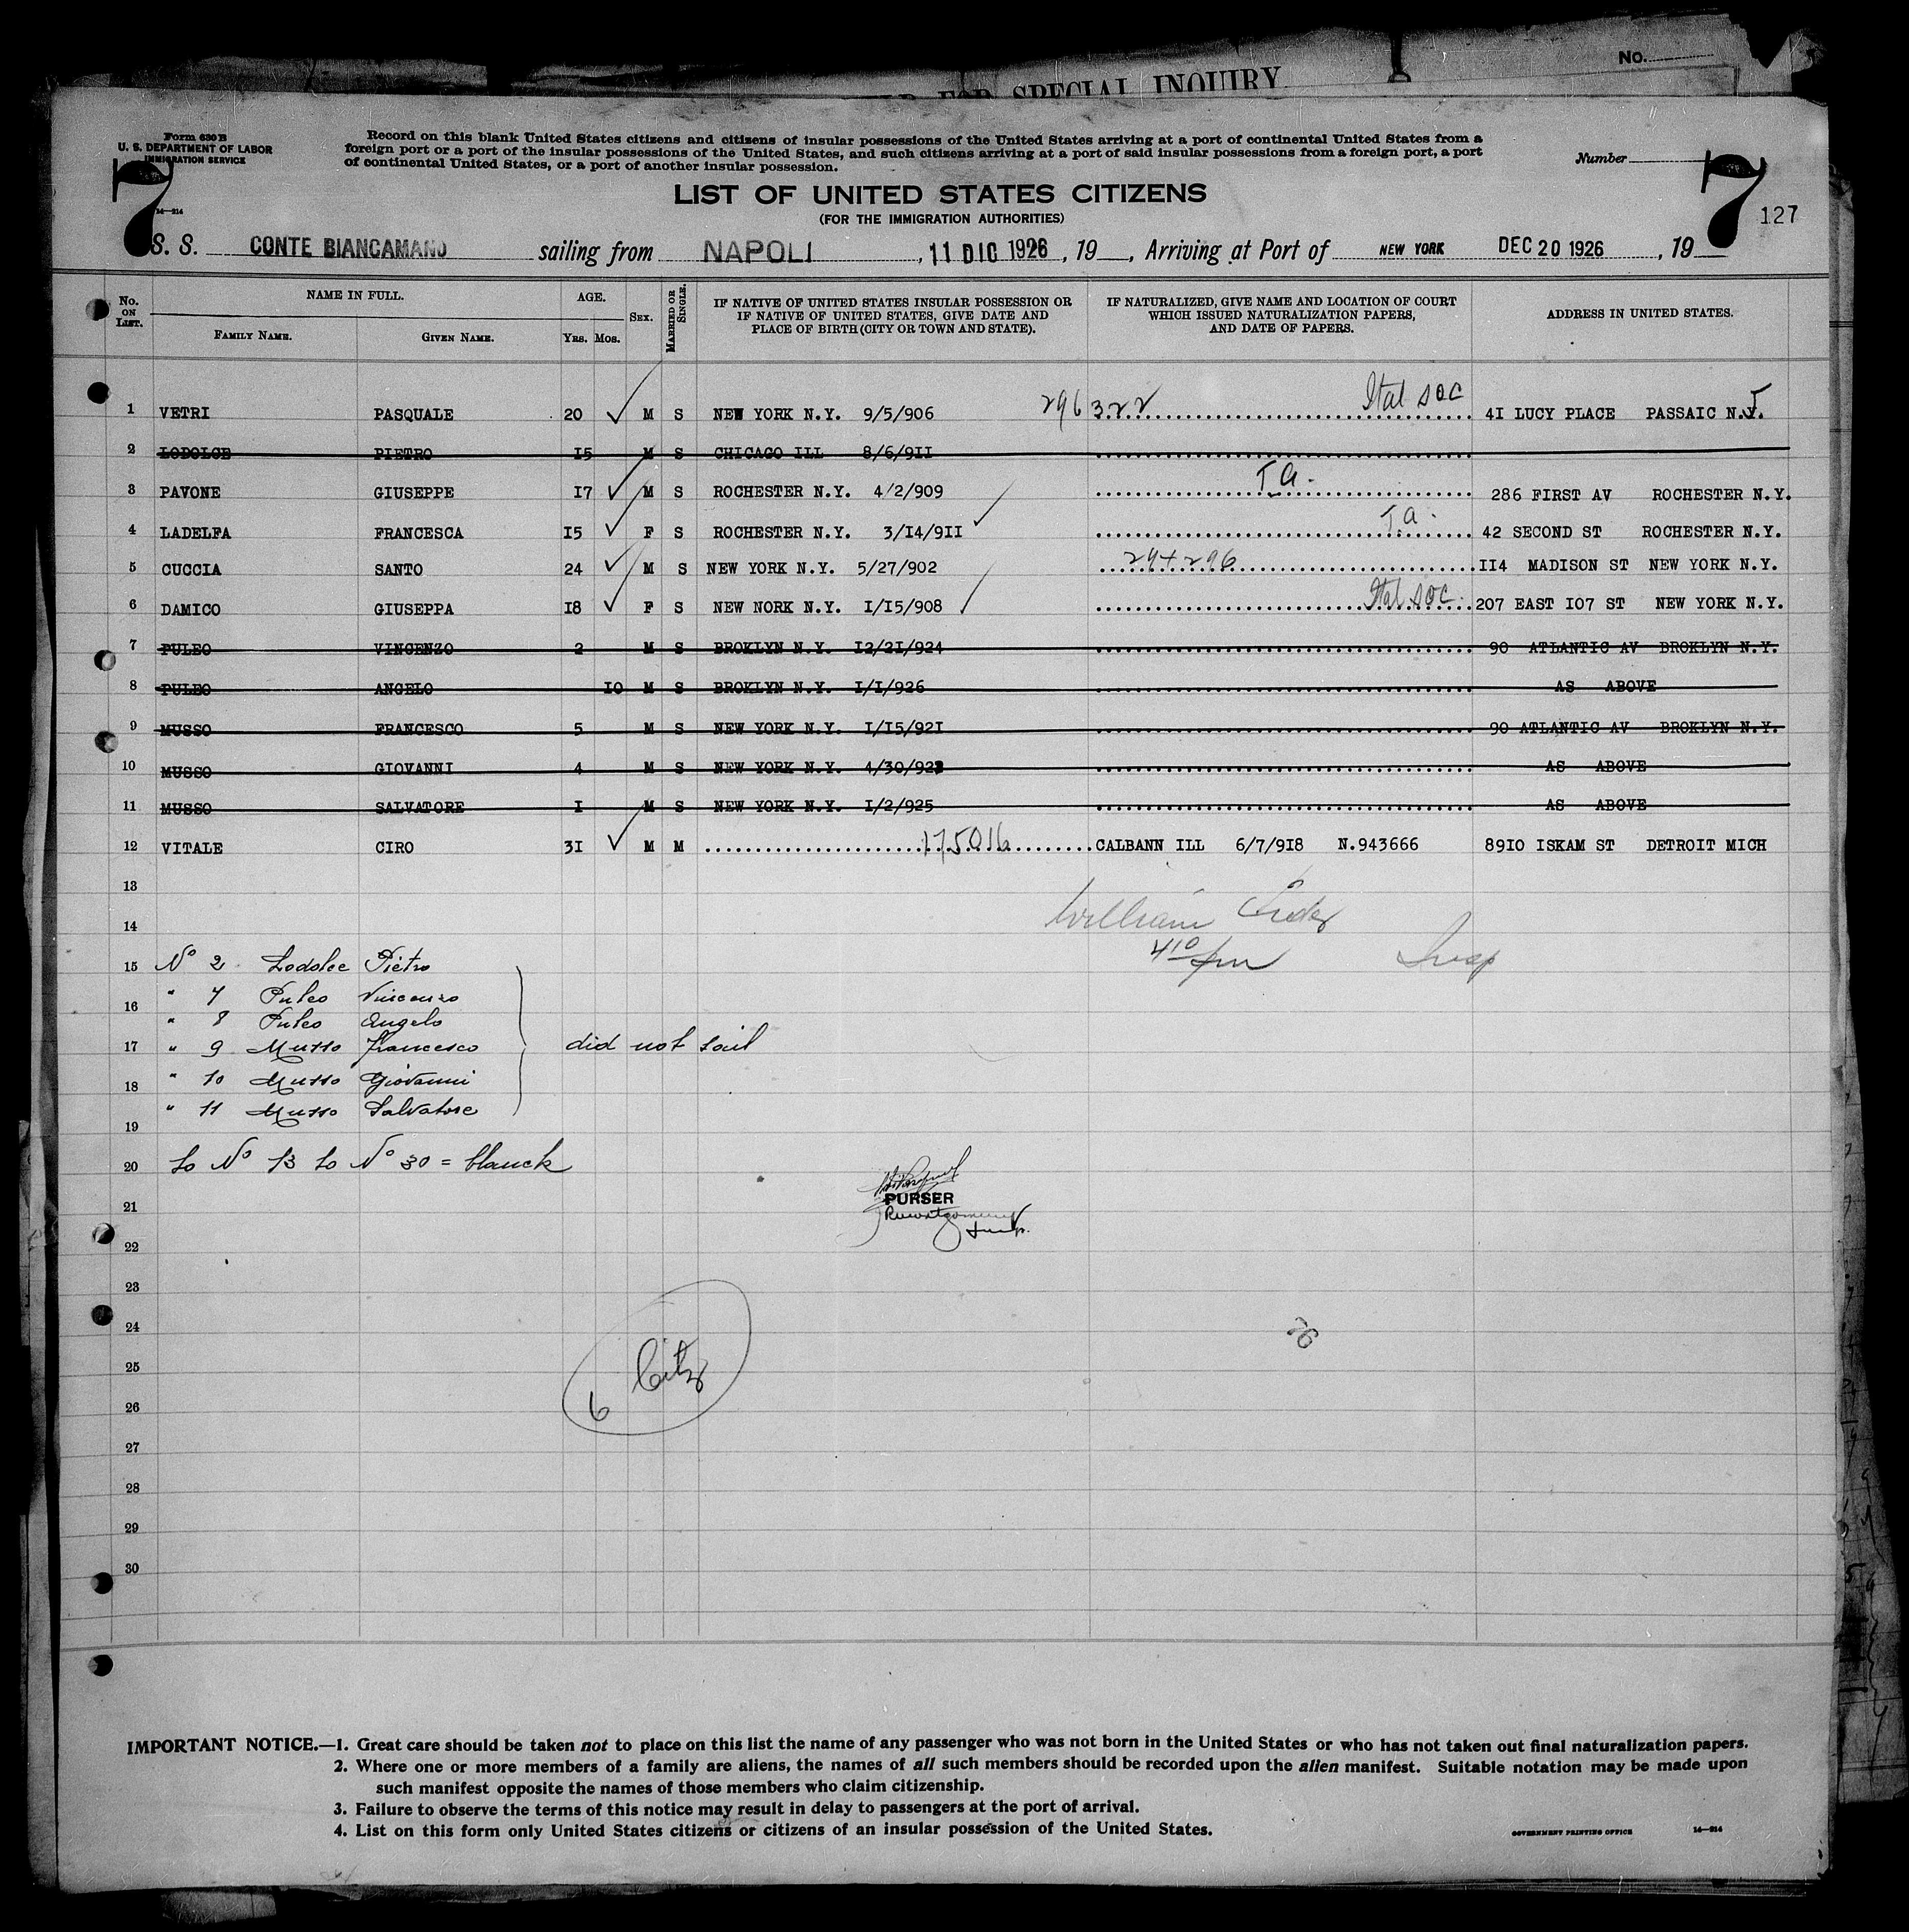 No.
FOR SPECIAL INQUIRY
Form 630 B
U. S. DEPARTMENT OF LABOR
IMMIGRATION SERVICE
14—214
7
Record on this blank United States citizens and citizens of insular possessions of the United States arriving at a port of continental United States from a
foreign port or a port of the insular possessions of the United States, and such citizens arriving at a port of said insular possessions from a foreign port, a port
of continental United States, or a port of another insular possession.
Number
7
127
LIST OF UNITED STATES CITIZENS
(FOR THE IMMIGRATION AUTHORITIES)
S. S. CONTE BIANCAMANO sailing from NAPOLI, 11 DIC 1926, 19, Arriving at Port of NEW YORK DEC 20 1926, 19
No. ON LIST. NAME IN FULL. FAMILY NAME. GIVEN NAME. AGE. YRS. MOS. SEX. MARRIED OR SINGLE. IF NATIVE OF UNITED STATES INSULAR POSSESSION OR IF NATIVE OF UNITED STATES, GIVE DATE AND PLACE OF BIRTH (CITY OR TOWN AND STATE). IF NATURALIZED, GIVE NAME AND LOCATION OF COURT WHICH ISSUED NATURALIZATION PAPERS, AND DATE OF PAPERS. ADDRESS IN UNITED STATES.
1 VETRI PASQUALE 20 ✓ M S NEW YORK N.Y. 9/5/906 296322 Ital Soc 4I LUCY PLACE PASSAIC N.J.
2 LODOLCE PIETRO I5 M S CHICAGO ILL 8/6/9II
3 PAVONE GIUSEPPE I7 ✓ M S ROCHESTER N.Y. 4/2/909 T.A. 286 FIRST AV ROCHESTER N.Y.
4 LADELFA FRANCESCA I5 ✓ F S ROCHESTER N.Y. 3/I4/9II ✓ T.a. 42 SECOND ST ROCHESTER N.Y.
5 CUCCIA SANTO 24 ✓ M S NEW YORK N.Y. 5/27/902 294296 II4 MADISON ST NEW YORK N.Y.
6 DAMICO GIUSEPPA I8 ✓ F S NEW NORK N.Y. I/I5/908 ✓ Ital Soc. 207 EAST I07 ST NEW YORK N.Y.
7 PULEO VINCENZO 2 M S BROKLYN N.Y. I2/2I/924 90 ATLANTIC AV BROKLYN N.Y.
8 PULEO ANGELO I0 M S BROKLYN N.Y. I/I/926 AS ABOVE
9 MUSSO FRANCESCO 5 M S NEW YORK N.Y. I/I5/92I 90 ATLANTIC AV BROKLYN N.Y.
10 MUSSO GIOVANNI 4 M S NEW YORK N.Y. 4/30/922 AS ABOVE
11 MUSSO SALVATORE I M S NEW YORK N.Y. I/2/925 AS ABOVE
12 VITALE CIRO 3I ✓ M M 175016 CALBANN ILL 6/7/9I8 N.943666 89I0 ISKAM ST DETROIT MICH
13
14 William
4 10 pm Insp
15 No 2 Lodolce Pietro
" 7 Puleo Vincenzo
16
" 8 Puleo Angelo
17 " 9 Musso Francesco did not sail
" 10 Musso Giovanni
18
" 11 Musso Salvatore
19
20 to No 13 to No 30 = blanck
21 PURSER
Insp.
22
23
24 76
25 Citz
26 6
27
28
29
30
IMPORTANT NOTICE.—1. Great care should be taken not to place on this list the name of any passenger who was not born in the United States or who has not taken out final naturalization papers.
2. Where one or more members of a family are aliens, the names of all such members should be recorded upon the alien manifest. Suitable notation may be made upon
such manifest opposite the names of those members who claim citizenship.
3. Failure to observe the terms of this notice may result in delay to passengers at the port of arrival.
4. List on this form only United States citizens or citizens of an insular possession of the United States.
GOVERNMENT PRINTING OFFICE 14—214